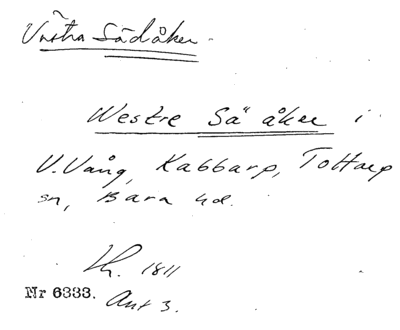 Västra Sädåker.
Westre Sä åker i
V. Vång, Kabbarp, Tottarp
sn, Bara hd.
Lh. 1811
Nr 6333. Akt 3.